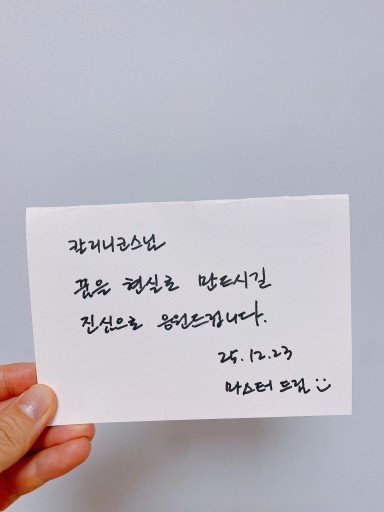 칼리니코스님
꿈을 현실로 만드시길
진심으로 응원드립니다.
25.12.23
마스터 드림 :)